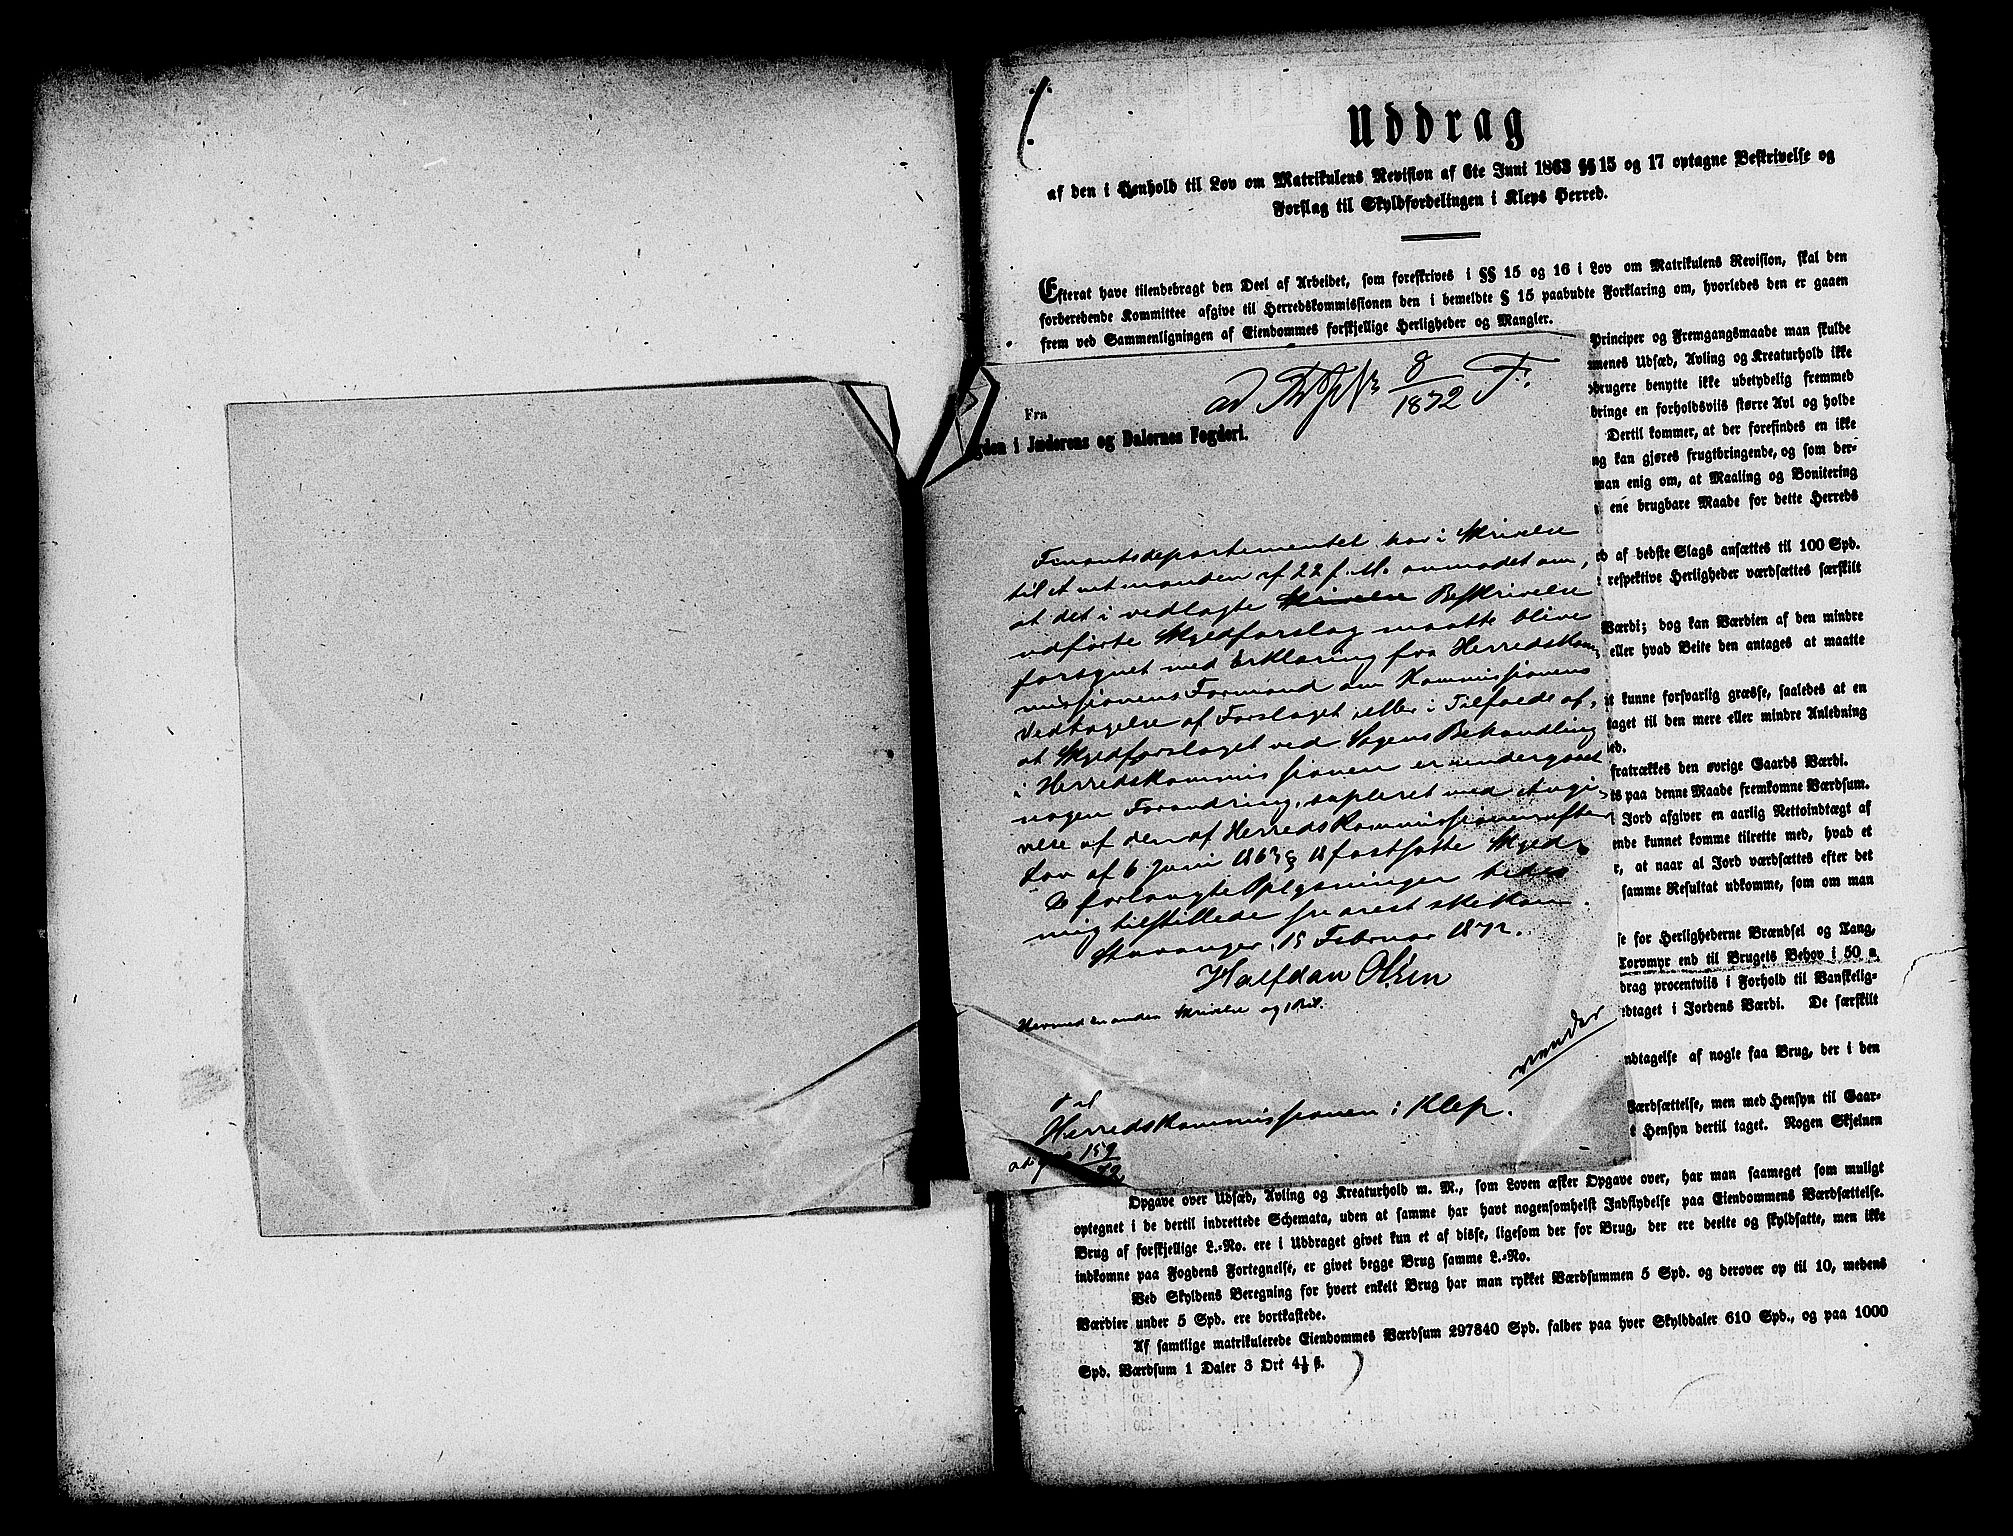 Uddrag
af den i Henhold til Lov om Matrikulens Revision af 6te Juni 1863 §§ 15 og 17 optagne Beskrivelse og
Forslag til Skyldfordelingen i Kleps Herred.
Efterat have tilendebragt den Deel af Arbeidet, som foreskrives i §§ 15 og 16 i Lov om Matrikulens Revision, skal den
forberedende Kommittee afgive til Herredskommissionen den i bemeldte § 15 paabudte Forklaring om, hvorledes den er gaaen
frem ved Sammenligningen af Eiendommes forskjellige Herligheder og Mangler.
ad 8/1872 F.
Fra
gden i Jæderens og Dalernes Fogderi.
Finantsdepartementet har i Skrivelse
til Amtmanden af 22 f. M. anmodet om,
at det i vedlagte Skrivelse Beskrivelse
udførte Skyldforslag maatte blive
forsynet med Erklæring fra Herredskom-
missionens Formand om Kommissionens
Vedtagelse af Forslaget eller i Tilfælde af,
at Skyldforslaget ved Sagens Behandling
i Herredskommissionen er undergaaet
nogen Forandring, supleret med Angi-
velse af den af Herredskommissionen efter
Lov af 6 Juni 1863 § 18 fastsatte Skyld.
De forlangte Oplysninger bedes
mig tilstillede snarest ske kan.
Stavanger, 15 Februar 1872.
Halfdan Olsen
Hermed en anden Skrivelse og 1 Bil.
vender
Til
Herredskommissionen i Klep.
159
72
Principer og Fremgangsmaade man skulde
menes Udsæd, Avling og Kreaturhold ikke
brugere benytte ikke ubetydelig fremmed
dringe en forholdsviis større Avl og holde
Dertil kommer, at der forefindes en ikke
ng kan gjøres frugtbringende, og som der-
man enig om, at Maaling og Bonitering
ene brugbare Maade for dette Herreds
af bedste Slags ansættes til 100 Spd.
respektive Herligheder værdsættes særskilt
Værdi; dog kan Værdien af den mindre
eller hvad Beite den antages at maatte
t kunne forsvarlig græsse, saaledes at en
taget til den mere eller mindre Anledning
ed.
fratrækkes den øvrige Gaards Værdi.
ts paa denne Maade fremkomne Værdsum.
Jord afgiver en aarlig Nettoindtægt af
ende kunnet komme tilrette med, hvad et
r, at naar al Jord værdsættes efter det
samme Resultat udkomme, som om man
se for Herlighederne Brændsel og Tang,
Torvmyr end til Brugets Behov i 50 a
drag procentviis i Forhold til Vanskelig-
edtaget i Jordens Værdi. De særskilt
ndtagelse af nogle faa Brug, der i den
Værdsættelse, men med Hensyn til Gaar-
t Hensyn dertil taget. Nogen Skjelnen
Opgave over Udsæd, Avling og Kreaturhold m. M., som Loven æsker Opgave over, har man saameget som muligt
optegnet i de dertil indrettede Schemata, uden at samme har havt nogensomhelst Indflydelse paa Eiendommens Værdsættelse.
Brug af forskjellige L.-No. ere i Uddraget givet kun et af disse, ligesom der for Brug, der ere deelte og skyldsatte, men ikke
indkomne paa Fogdens Fortegnelse, er givet begge Brug samme L.-No.
Ved Skyldens Beregning for hvert enkelt Brug har man rykket Værdsummen 5 Spd. og derover op til 10, medens
Værdier under 5 Spd. ere bortkastede.
Af samtlige matrikulerede Eiendommes Værdsum 297840 Spd. falder paa hver Skylddaler 610 Spd., og paa 1000
Spd. Værdsum 1 Daler 3 Ort 4½ ß.